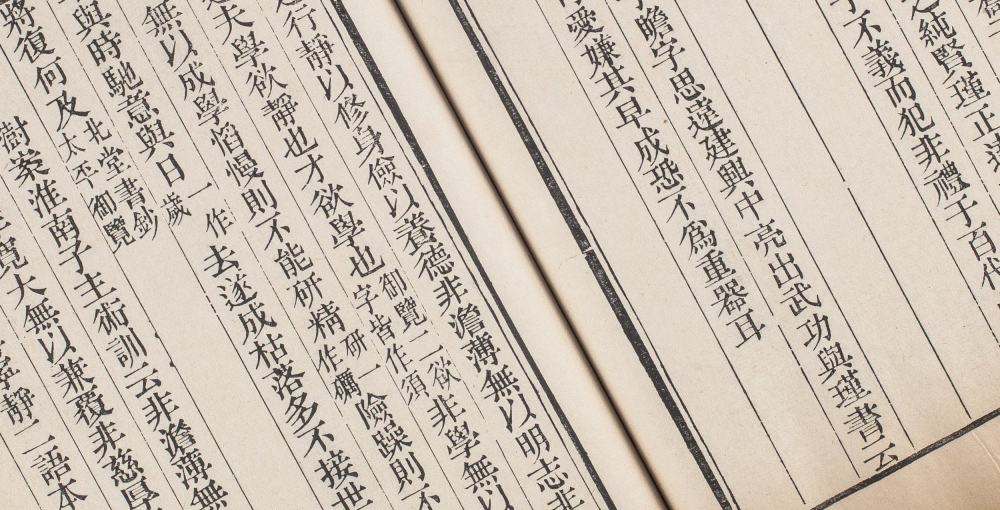 純賢瑾正
不義而犯非禮于百代
瞻字思遠建興中亮出武功與瑾書云
愛嫌其早成恐不為重器耳
行靜以修身儉以養德非澹薄無以明志非
夫學欲靜也才欲學也御覽二欲字皆作須非學無以
無以成學慆慢則不能研精研一作礪險躁則不
與時馳意與日一作歲去遂成枯落多不接世
將復何及北堂書鈔太平御覽
澍案淮南子主術訓云非澹薄無
寬大無以兼覆非慈厚
寧靜二語本